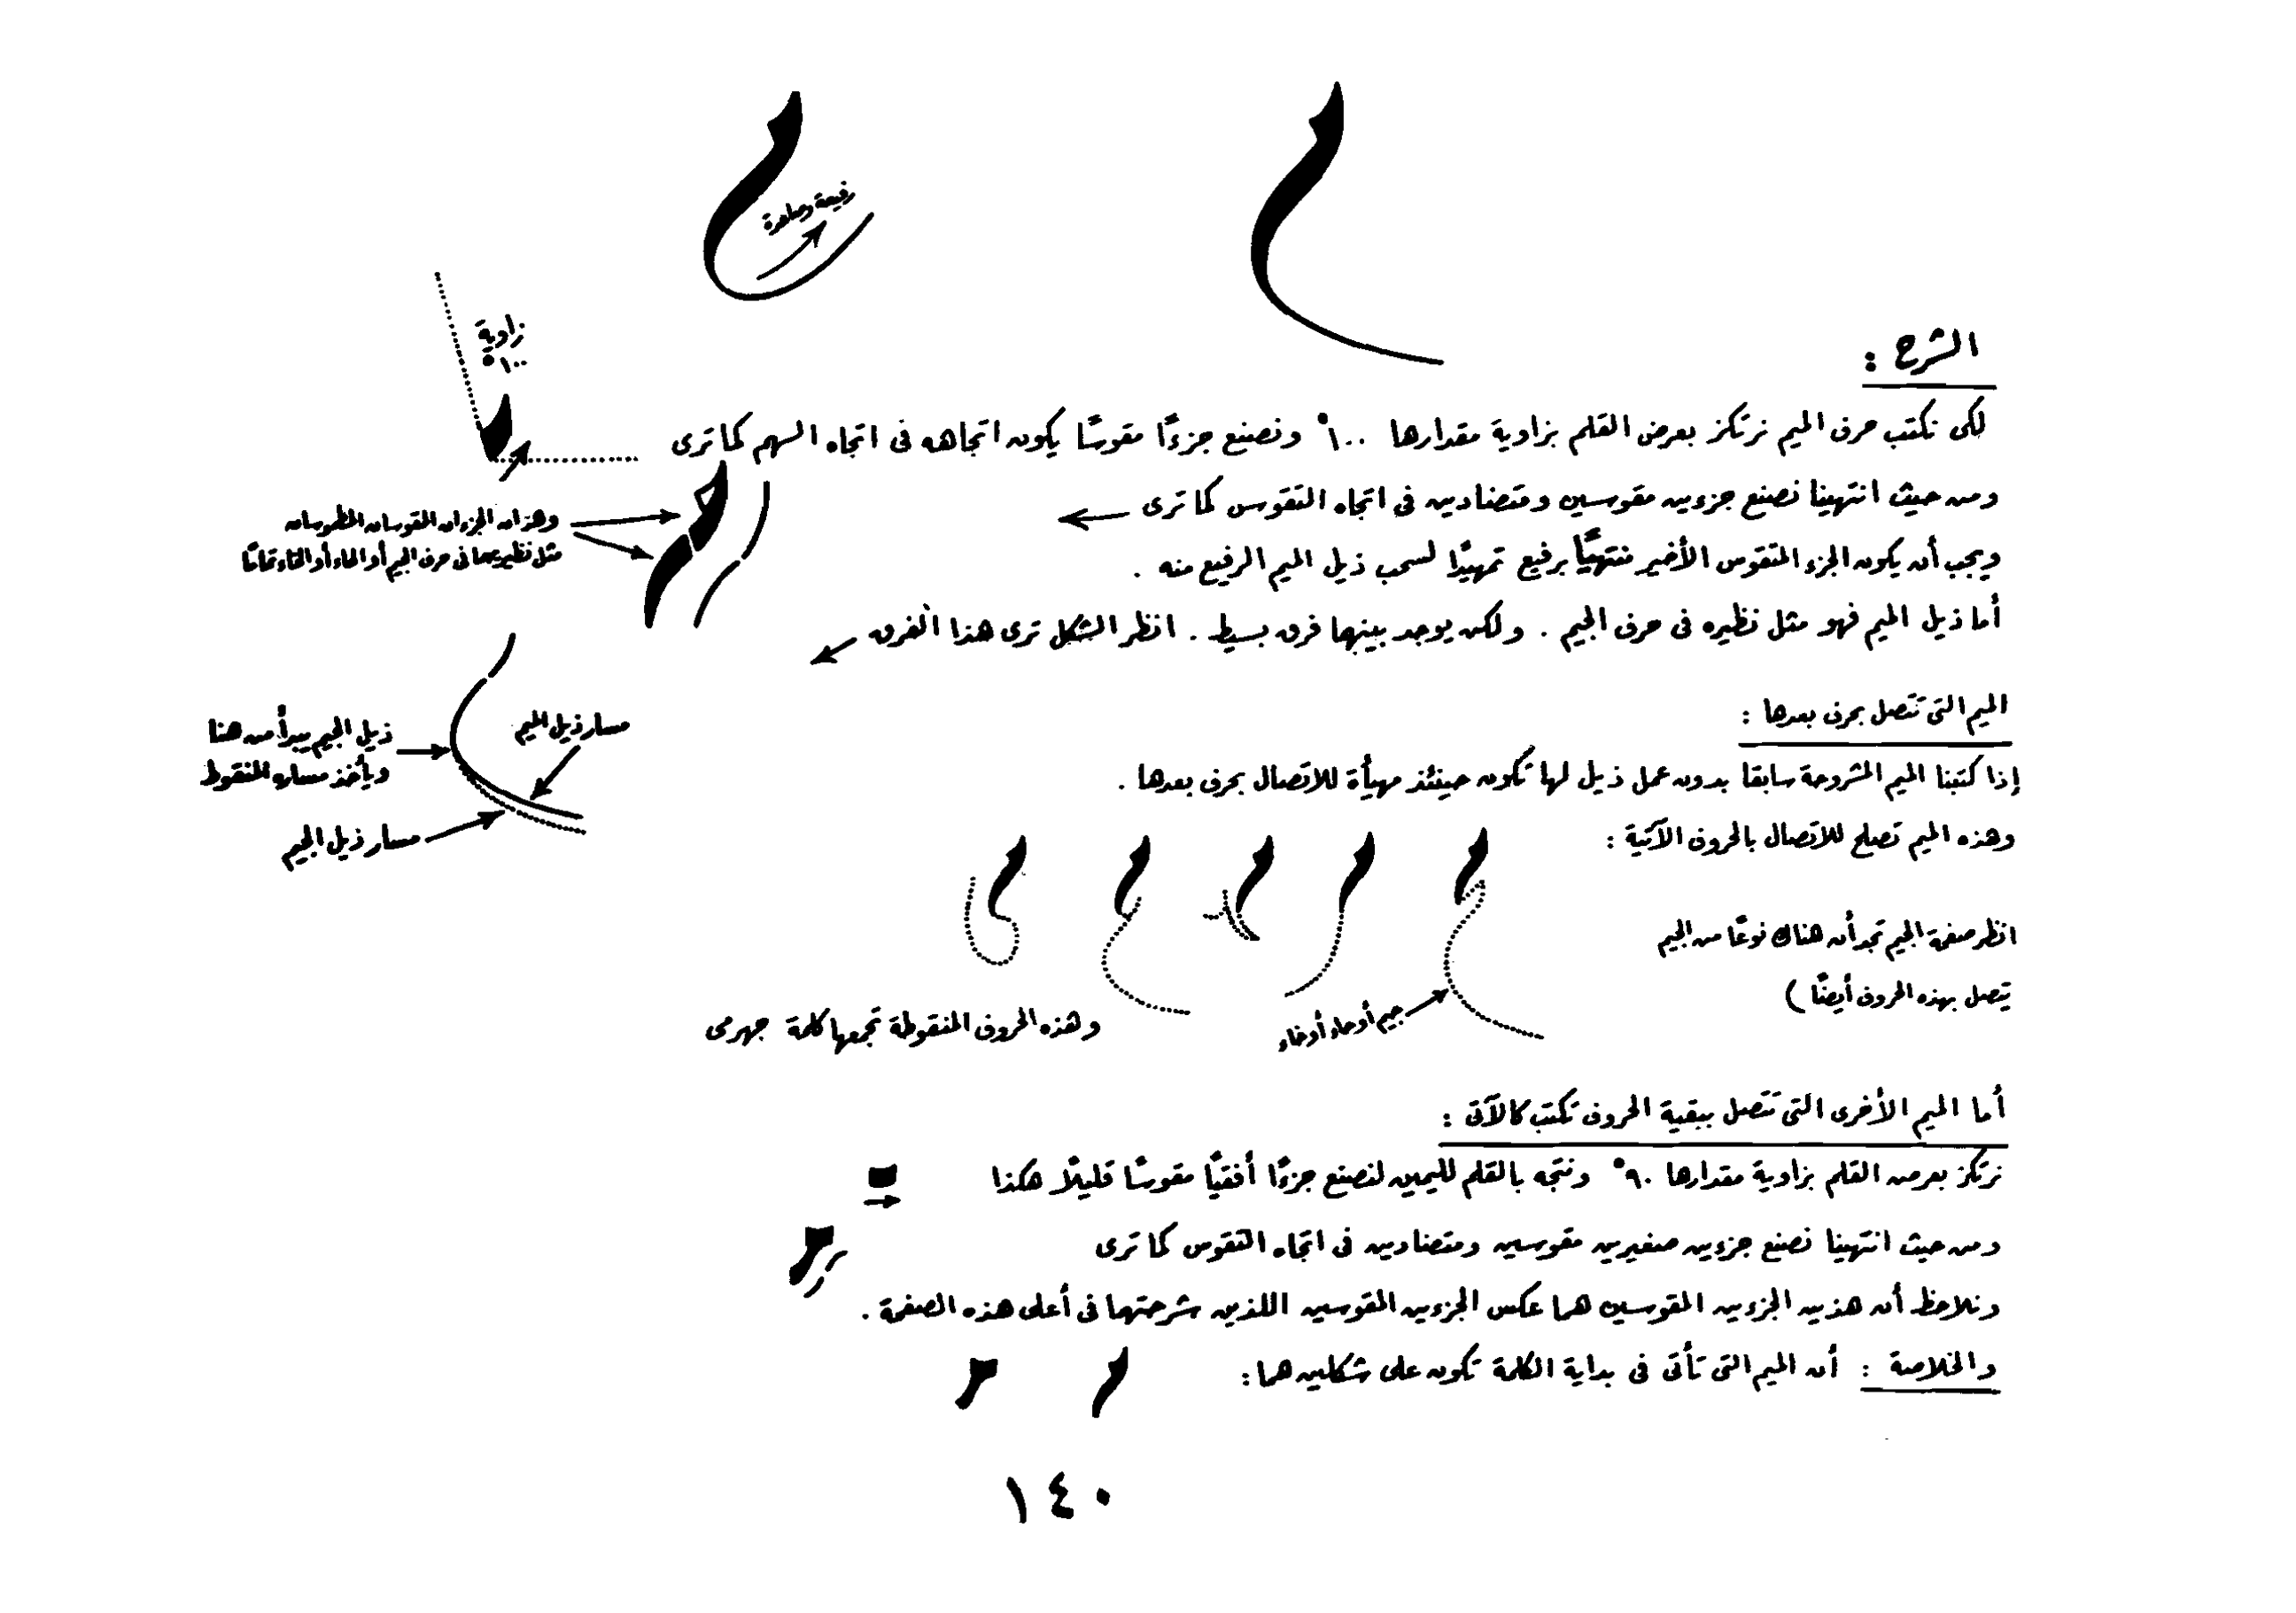 رفيعة وصاعدة
زاوية
١٠٠°
الشرح :
لكى نكتب حرف الميم نرتكز بعرض القلم بزاوية مقدارها ١٠٠° ونصنع جزءًا مقوسًا يكون اتجاهه فى اتجاه السهم كما ترى
ومن حيث انتهينا نصنع جزءين مقوسين ومتضادين فى اتجاه التقوس كما ترى
وهذان الجزءان المقوسان المطموسان
مثل نظيريهما فى حرف الجيم أو الحاء أو الخاء تمامًا
ويجب أن يكون الجزء المتقوس الأخير منتهيًا برفيع تمهيدًا لسحب ذيل الميم الرفيع منه .
أما ذيل الميم فهو مثل نظيره فى حرف الجيم . ولكن يوجد بينهما فرق بسيط . انظر الشكل ترى هذا الفرق
مسار ذيل الميم
ذيل الجيم يبدأ من هنا
ويأخذ مساره المنقوط
مسار ذيل الجيم
الميم التى تتصل بحرف بعدها :
إذا كتبنا الميم المشروحة سابقا بدون عمل ذيل لها تكون حينئذ مهيأة للاتصال بحرف بعدها .
وهذه الميم تصلح للاتصال بالحروف الآتية :
انظر صفحة الجيم تجد أن هناك نوعًا من الجيم
تتصل بهذه الحروف أيضًا )
جيم أو حاء أو خاء
وهذه الحروف المنقوطة تجمعها كلمة جهرمى
أما الميم الأخرى التى تتصل ببقية الحروف تكتب كالآتى :
نرتكز بعرض القلم بزاوية مقدارها ٩٠° ونتجه بالقلم لليمين لنصنع جزءًا أفقيًا مقوسًا قليلًا هكذا
ومن حيث انتهينا نصنع جزءين صغيرين مقوسين ومتضادين فى اتجاه التقوس كما ترى
ونلاحظ أن هذين الجزءين المقوسين هما عكس الجزءين المقوسين اللذين شرحتهما فى أعلى هذه الصفحة .
والخلاصة : أن الميم التى تأتى فى بداية الكلمة تكون على شكلين هما :
١٤٠